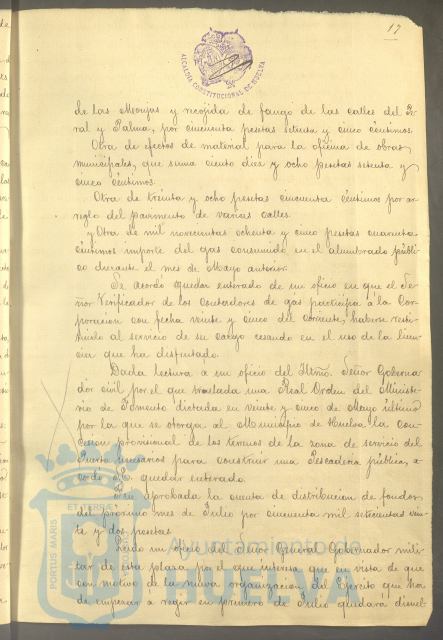 17
ALCALDIA CONSTITUCIONAL DE HUELVA
de las Monjas y recojida de fango de las calles del Pe-
ral y Palma, por cincuenta pesetas setenta y cinco céntimos.
Otra de efectos de material para la oficina de obras
municipales, que suma ciento diez y ocho pesetas setenta y
cinco céntimos.
Otra de treinta y ocho pesetas cincuenta céntimos por ar-
reglo del pavimento de varias calles.
y Otra de mil novecientas ochenta y cinco pesetas cuarenta
céntimos importe del gas consumido en el alumbrado públi-
co durante el mes de Mayo anterior.
Se acordó quedar enterado de un oficio en que el Se-
ñor Verificador de los Contadores de gas participa á la Cor-
poracion con fecha veinte y cinco del corriente, haberse resti-
tuido al servicio de su cargo cesando en el uso de la licen-
cia que ha disfrutado.
Dada lectura á un oficio del Iltmo. Señor Goberna-
dor civil por el que traslada una Real Orden del Ministe-
rio de Fomento dictada en veinte y cinco de Mayo último
por la que se otorga al Municipio de Huelva la con-
cesion provisional de los terrenos de la zona de servicio del
Puerto necesarios para construir una Pescadería pública, a-
cordó quedar enterado.
Fué aprobada la cuenta de distribucion de fondos
del próximo mes de Julio por cincuenta mil setecientas vein-
te y dos pesetas.
Leido un oficio del Señor General Gobernador mili-
tar de esta plaza, por el que interesa que en vista de que
con motivo de la nueva organizacion del Ejército que ha
de empezar á regir en primero de Julio quedará disuel-
PORTUS MARIS
ET TERRÆ
Ayuntamiento de
HUELVA